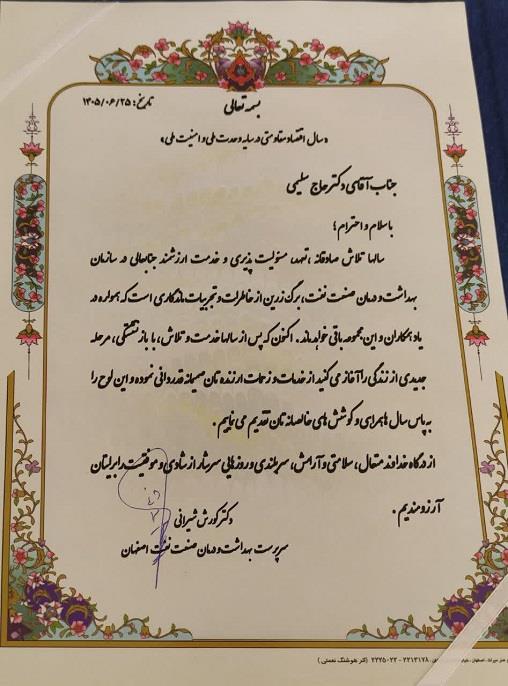 بسمه تعالی
تاریخ: ۱۴۰۵/۰۶/۲۵
«سال اقتصاد مقاومتی در سایه وحدت ملی و امنیت ملی»
جناب آقای دکتر حاج سلیمی
باسلام و احترام؛
سالها تلاش صادقانه، تعهد، مسئولیت پذیری و خدمت ارزشمند جنابعالی در سازمان
بهداشت و درمان صنعت نفت، برگ زرین از خاطرات و تجربیات ماندگاری است که همواره در
یاد همکاران و این مجموعه باقی خواهد ماند. اکنون که پس از سالها خدمت و تلاش، با بازنشستگی، مرحله
جدیدی از زندگی را آغاز می کنید از خدمات و زحمات ارزنده تان صمیمانه قدردانی نموده و این لوح را
به پاس سال ها همراهی و کوشش های خالصانه تان تقدیم می نماییم.
از درگاه خداوند متعال، سلامتی و آرامش، سربلندی و روزهایی سرشار از شادی و موفقیت را برایتان
آرزومندیم.
دکتر کورش شیرانی
سرپرست بهداشت و درمان صنعت نفت اصفهان
۲۲۱۳۱۷۸ - ۲۲۲۵۰۲۲ (اثر هوشنگ نعمتی)